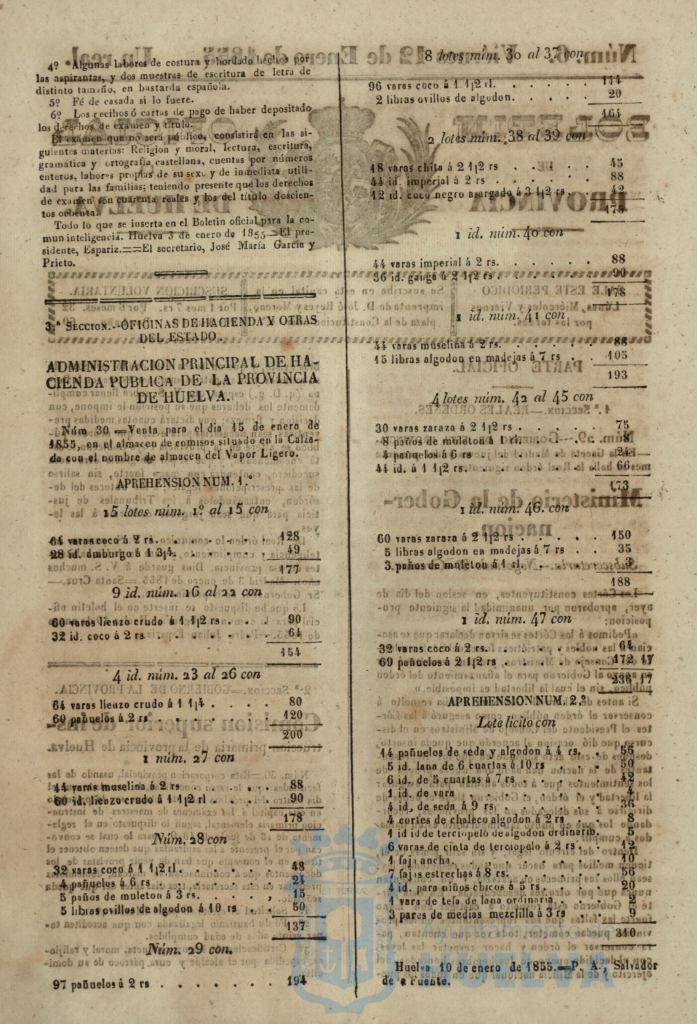 4º Algunas labores de costura y bordado hechos por
las aspirantas, y dos muestras de escritura de letra de
distinto tamaño, en bastarda española.
5º Fé de casada si lo fuere.
6º Los recibos ó cartas de pago de haber depositado
los derechos de examen y título.
El examen que no será público, consistirá en las si-
guientes materias: Religion y moral, lectura, escritura,
gramática y ortografia castellana, cuentas por números
enteros, labores propias de su sexo y de inmediata utili-
dad para las familias; teniendo presente que los derechos
de examen son cuarenta reales y los del título doscien-
tos ochenta.
Todo lo que se inserta en el Boletin oficial para la co-
mun inteligencia. Huelva 3 de enero de 1855.—El pre-
sidente, Espariz.—El secretario, José María Garcia y
Prieto.
3.ª SECCION.—OFICINAS DE HACIENDA Y OTRAS
DEL ESTADO.
ADMINISTRACION PRINCIPAL DE HA-
CIENDA PUBLICA DE LA PROVINCIA
DE HUELVA.
Núm 30—Venta para el dia 15 de enero de
1855, en el almacen de comisos situado en la Calza-
da con el nombre de almacen del Vapor Ligero.
APREHENSION NUM. 1.º
15 lotes núm. 1º al 15 con
64 varas coco á 2 rs. . . . . 128
28 id. amburgo á 1 3/4. . . . . 49
177
9 id. núm. 16 al 22 con
60 varas lienzo crudo á 1 1/2 rs . . . 90
32 id. coco á 2 rs . . . . 64
154
4 id. núm. 23 al 26 con
64 varas lienzo crudo á 1 1/4 . . . . 80
60 pañuelos á 2 rs . . . . 120
200
1 núm. 27 con
44 varas muselina á 2 rs . . . . 88
60 id. lienzo crudo á 1 1/2 rl . . . 90
178
Núm. 28 con
32 varas coco á 1 1/2 rl. . . . . 48
4 pañuelos á 6 rs . . . . 24
5 paños de muleton á 3 rs. . . . 15
5 libras ovillos de algodon á 10 rs . . . 50
137
Núm. 29 con.
97 pañuelos á 2 rs . . . . 194
8 lotes núm. 30 al 37 con
96 varas coco á 1 1/2 rl. . . . . 144
2 libras ovillos de algodon. . . . . 20
164
2 lotes núm. 38 al 39 con
18 varas chita á 2 1/2 rs . . . . 45
44 id. imperial á 2 rs . . . . 88
12 id. coco negro asargado á 3 1/2 rs . . 42
175
1 id. núm. 40 con
44 varas imperial á 2 rs. . . . . 88
36 id. ganga á 2 1/2 rs. . . . . 90
178
1 id. núm. 41 con
44 varas muselina á 2 rs. . . . . 88
15 libras algodon en madejas á 7 rs . . 105
193
4 lotes núm. 42 al 45 con
30 varas zaraza á 2 1/2 rs . . . . 75
8 paños de muleton á 1 rs. . . . 8
4 pañuelos á 6 rs . . . . 24
44 id. á 1 1/2 rs. . . . . 66
173
1 id. núm. 46. con
60 varas zaraza á 2 1/2 rs . . . . 150
5 libras algodon en madejas á 7 rs . . 35
3 paños de muleton á 1 rl. . . . 3
188
1 id. núm. 47 con
32 varas coco á 2 rs. . . . . 64
69 pañuelos á 2 1/2 rs . . . . 172 17
236 17
APREHENSION NUM. 2.º
Lote licito con
14 pañuelos de seda y algodon á 4 rs. . . 56
5 id. lana de 6 cuartas á 10 rs . . . 50
6 id. de 5 cuartas á 7 rs . . . . 42
1 id. de vara . . . . 4
4 id. de seda á 9 rs . . . . 36
4 cortes de chaleco algodon á 2 rs . . 8
1 id id de terciopelo de algodon ordinario.
6 varas de cinta de terciopelo á 2 rs . . 12
1 faja ancha. . . . . 10
7 fajas estrechas á 8 rs. . . . 56
4 id. para niños chicos á 5 rs. . . . 20
1 vara de tela de lana ordinaria. . .
3 pares de medias mezclilla á 3 rs . . 9
310
Huelva 10 de enero de 1855.—P. A., Salvador
de a Fuente.